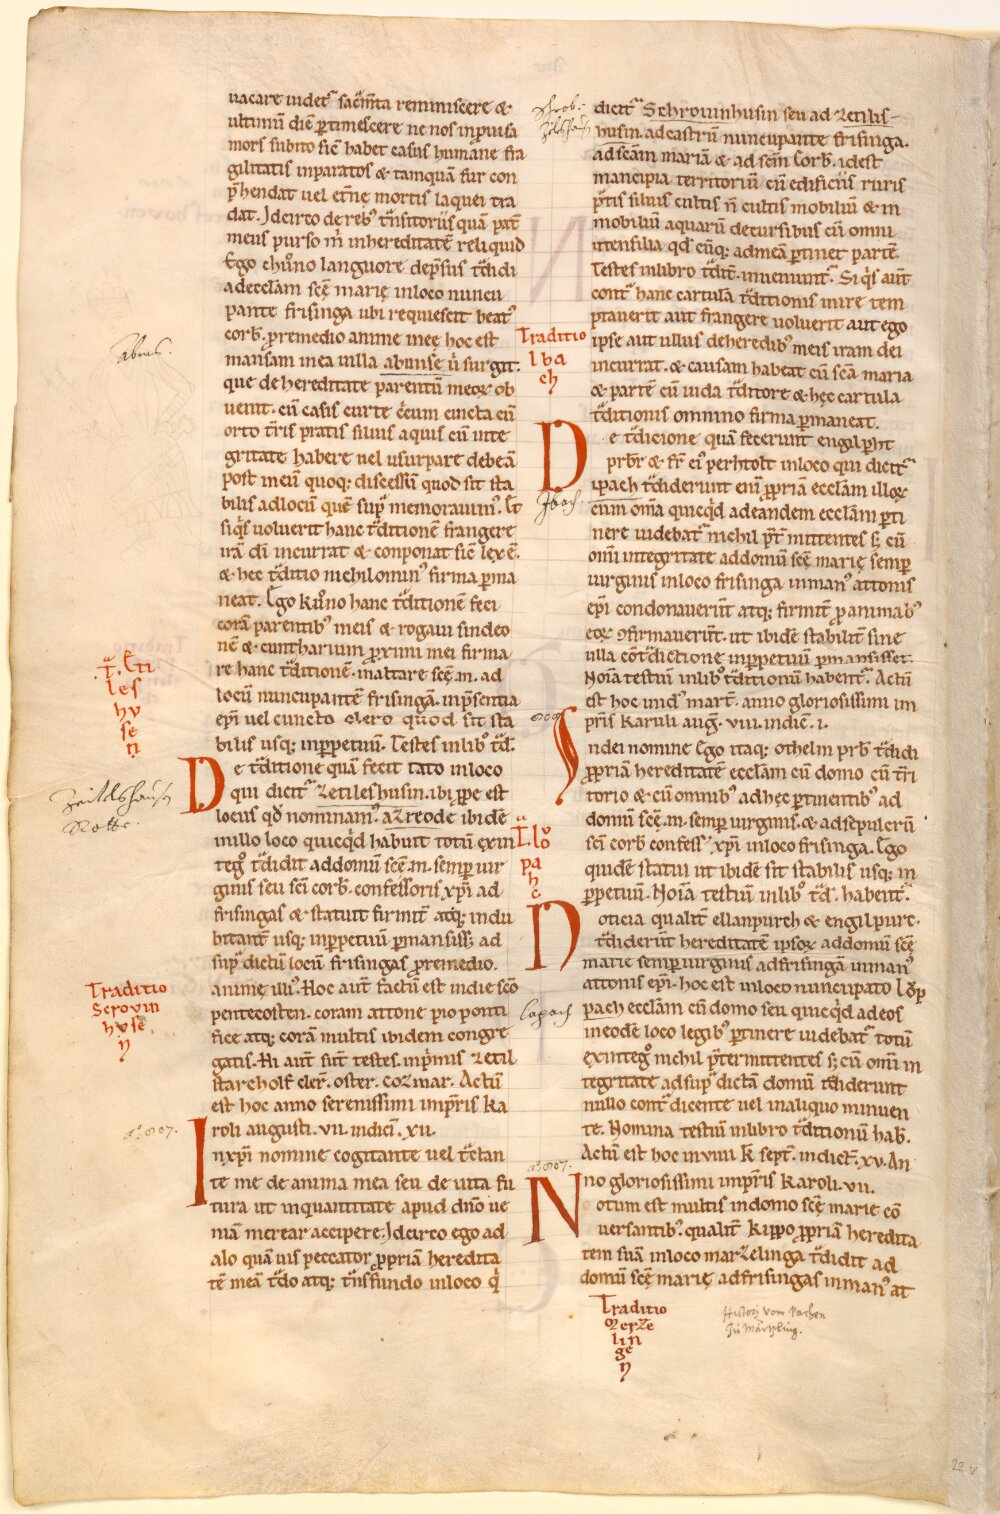 uacare uidet᷑ sac̄m̄ta reminiscere &
ultimū diē ꝑtimescere ne nos inꝓuisa
mors subito sic̄ habet casus humane fra
gilitatis inparatos & tamquā fur con
p̄hendat uel et̄nę mortis laquei tra
dat. Idcirco de reb᷒ t̄nsitoriis quā pat̄
meus purso m̄ inhereditatē reliquid
Ego chuͦno languore dep̄sus t̄didi
adecclam scę̄ marię inloco nuncu
pante frisinga ubi requiescit beat᷒
corb̄. ꝓremedio anime meę hoc est
mansam inea uilla abunse ū surgit.
que de hereditate parentū meoꝝ ob
uenit. cū casis curte c̄cum cincta cū
orto t̄ris pratis siluis aquis cū inte
gritate habere uel usurpare debeā
post meū quoq; discessū quod sit sta
bilis adlocū quē sup᷑ memorauim᷒. Et
siq̇s uoluerit hanc t̄ditionē frangere
irā dī incurrat & conponat sic̄ lex ē.
& hec t̄ditio nichilomin᷒ firma ꝑma
neat. Ego kuͦno hanc t̄ditionē feci
corā parentib᷒ meis & rogaui sindeo
nē & cuntharium ꝓximi mei firma
re hanc t̄ditionē. inaltare scę̄.m. ad
locū nuncupantē frisingā. inp̄sentia
ep̄i uel cuncto clero quod sit sta
bilis usq; inꝑpetuū. Testes inlib̄ t̄d̄.
De t̄ditione quā fecit tato inloco
qui dicit᷑ zetileshusin. ibi ꝓpe est
locus qd̄ nominam᷒. azreode ibidē
inillo loco quicq̇d habuit totū exin
tegͦ t̄didit addomū scę̄.m. semp uir
ginis seu sc̄i corb̄. confessoris xp̄i ad
frisingas & statuit firmit̄ atq; indu
bitant̄ usq; inꝑpetuū ꝑmansiss; ad
sup᷑ dictū locū frisingas ꝓremedio.
animę illi᷒. Hoc aut̄ factū est indie scō
pentecosten. coram attone pio ponti
fice atq; corā multis ibidem congre
gatis. Hi aut̄ sūt testes. inp̄mis zetil
starcholf cler̄. oster. cozmar. Actū
est hoc anno serenissimi inp̄ris ka
roli augusti. vii. indici̅. xii.
Inxp̄i nomine cogitante uel t̄ctan
te me de anima mea seu de uita fu
tura ut inquantitate apud dnō ue
niā merear accipere. Idcirco ego ad
alo quā uis peccator ꝓpriā heredita
tē meā t̄do atq; t̄nsfundo inloco q̄
Abens.
Tͣ. Eti
les
hv
se
n
Zeitelshausen
Traditio
Scrovin
hvse
n
aº. 807.
Schrob.
dicit᷑ Schrouinhusin seu ad zetilis-
husin. adcastrū nuncupante frisinga.
adscām mariā & ad sc̄m Corb̄. idest
mancipia territoriū cū edificiis ruris
p̄tis siluis cultis n̄ cultis mobiliū & in
mobiliū aquarū decursibus cū omni
utensilia qd̄ cūq; admeā ꝑtinet partē.
Testes inlibro t̄dit̄. inueniunt᷑. Si q̇s aūt
cont᷑ hanc cartulā t̄ditionis inire tem
ptauerit aut frangere uoluerit aut ego
ipse aut ullus deheredib᷒ meis iram dei
incurrat. & causam habeat cū scā maria
& partē cū iuda t̄ditore & hęc cartula
t̄ditionis omnino firma ꝑmaneat.
De t̄dicione quā fecerunt engilp̄ht
prb̄r & fr̄ ei᷒ perhtolt inloco qui dicit᷑
ipach t̄diderunt enī ꝓpriā ecclām illoꝝ
cum om̄a quicq̇d adeandem ecclām ꝑti
nere uidebat᷑ nichil p̄t̄ mittentes s; cū
om̄i integritate addomū scę̄ marię semp
uirginis inloco frisinga inman᷒ attonis
ep̄i condonauerūt atq; firmit̄ ꝓ animab᷒
eoꝝ ꝯfirmauerūt. ut ibidē stabilit̄ sine
ulla cōt̄dictione inꝑpetuū ꝑmansisset.
Noīa testiū inlib᷒ t̄ditionū habent᷑. Actū
est hoc inid᷒ mart̄. anno gloriosissimi im
pr̄is Karuli aug̅. viii. indic̄. i.
Indei nomine Ego itaq; othelm prb̄ t̄didi
ꝓpriā hereditatē ecclām cū domo cū t̄ri
torio & cū omnib᷒ adhęc ꝑtinentib᷒ ad
domū scę̄.m. semp uirginis. & adsepulcrū
sc̄i corb̄ confess᷑ xp̄i inloco frisinga. Ego
quidē statui ut ibidē sit stabilis usq; in
ꝑpetuū. Noīa testiū inlib᷒ t̄d̄. habent᷑.
Noticia qualit̄ ellanpurch & engilpurc.
t̄diderūt hereditatē ipsoꝝ addomū scę̄
marie semp uirginis adfrisingā inman᷒
attonis ep̄i. hoc est inloco nuncupato loͮp
pach ecclām cū domo seu quicq̇d adeos
ineodē loco legib᷒ ꝑtinere uidebat᷑ totū
exintegͦ nichil p̄termittentes s; cū om̄i in
tegritate adsup᷑ dictā domū t̄diderunt
nullo cont᷑ dicente uel inaliquo minuen
te. Nomina testiū inlibro t̄ditionū hab̄.
Actū est hoc inviiii k̄ sept̄. indict̄. xv. An
no gloriosissimi inp̄ris Karoli. vii.
Notum est multis indomo scę̄ marie cō
uersantib᷒. qualit̄ Kippo ꝓpriā heredita
tem suā inloco marzelinga t̄didit ad
domū scę̄ marię adfrisingas inman᷒ at
Traditio
Iba
ch
Ibach.
809
Tͣ. loͮ
pa
h
c
Lapach
aº. 807.
Traditio
Merze
lin
ge
n
Histori vom Pachen
Zu Märzling.
22 v